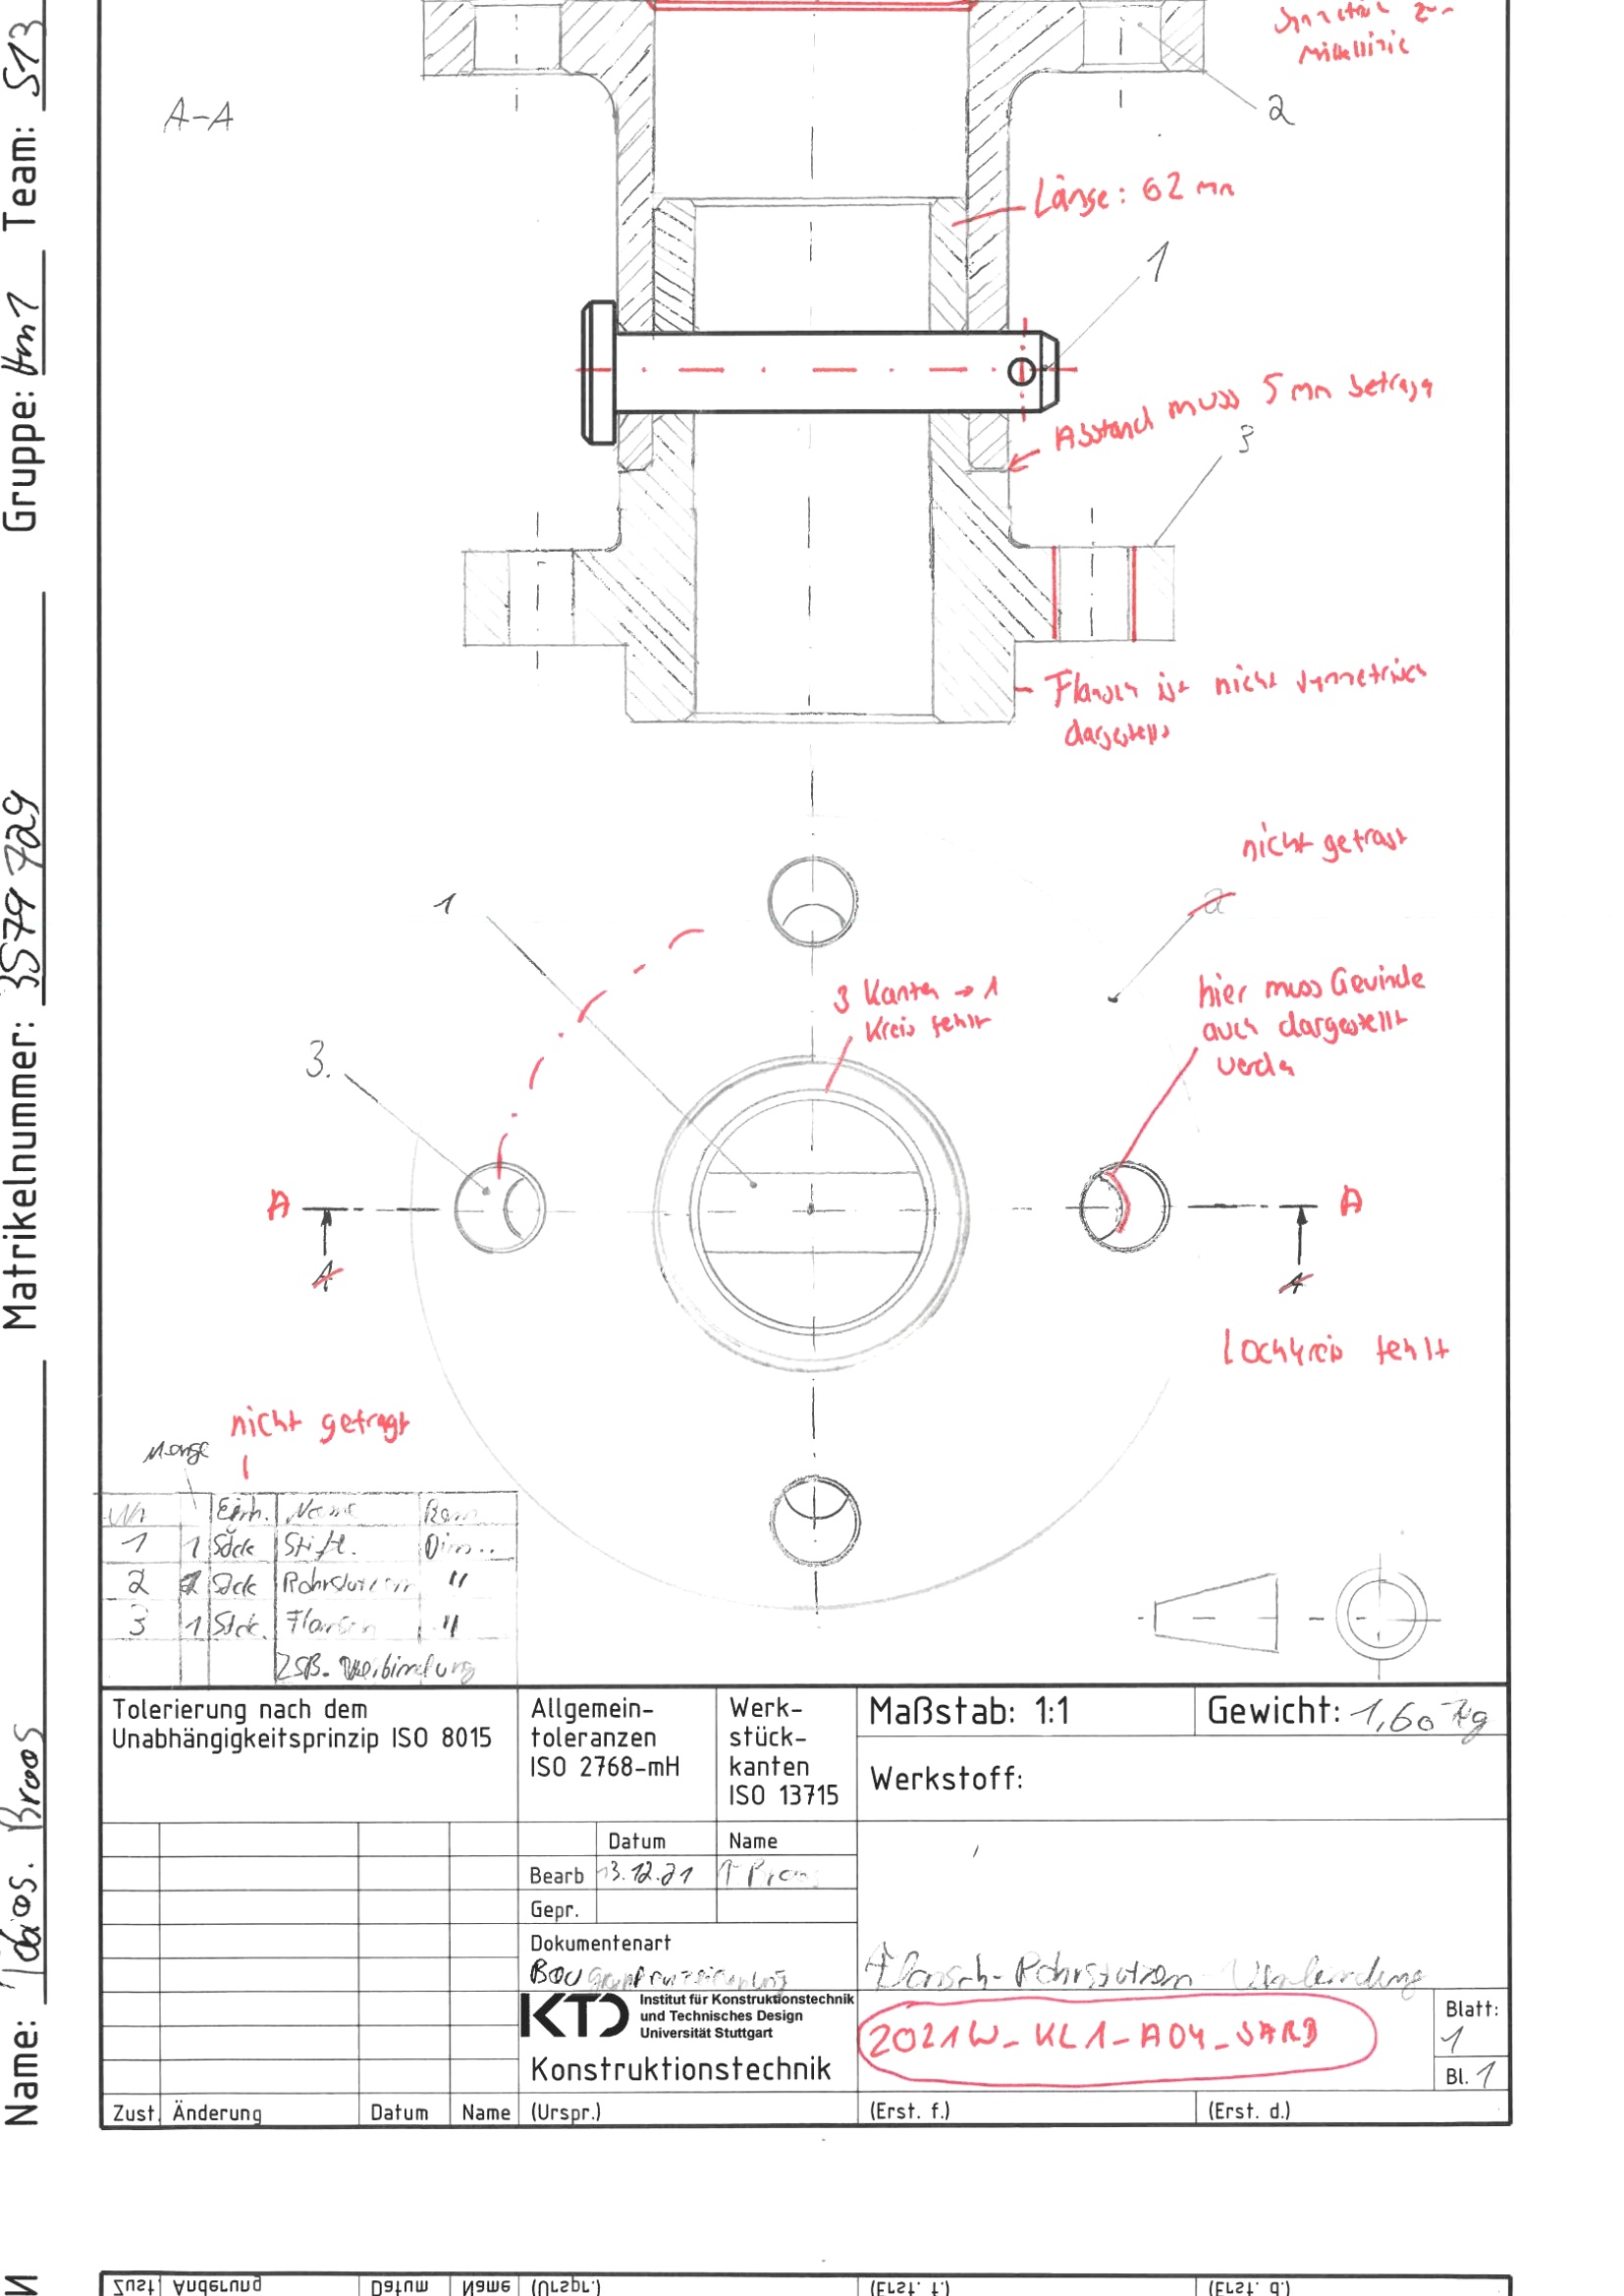 Name: Tobias. Broos
Matrikelnummer: 3579729
Gruppe: Hm1
Team: S13
A-A
Mittellinie
2
Länge: 62 mm
1
Abstand muss 5 mm betragen
3
Flansch ist nicht symmetrisch
dargestellt
nicht gefragt
2
1
3 Kanten → 1
Kreis fehlt
hier muss Gewinde
auch dargestellt
werden
3.
A
A
A
A
Lochkreis fehlt
nicht gefragt
Menge
Nr Einh. Name Bem.
1 1 Stck Stift. Dim..
2 1 Stck Rohrstutzen "
3 1 Stck. Flansch "
ZSB. Verbindung
Tolerierung nach dem
Unabhängigkeitsprinzip ISO 8015
Allgemein-
toleranzen
ISO 2768-mH
Werk-
stück-
kanten
ISO 13715
Maßstab: 1:1
Gewicht: 1,60 kg
Werkstoff:
Datum Name
Bearb 13.12.21
Gepr.
Dokumentenart
Baugruppenzeichnung
Flansch-Rohrstutzen-Verbindung
KTD
Institut für Konstruktionstechnik
und Technisches Design
Universität Stuttgart
Konstruktionstechnik
2021W_KL1_A04_SARB
Blatt:
1
Bl. 1
Zust. Änderung Datum Name (Urspr.) (Erst. f.) (Erst. d.)
Zust. Änderung Datum Name (Urspr.) (Erst. f.) (Erst. d.)